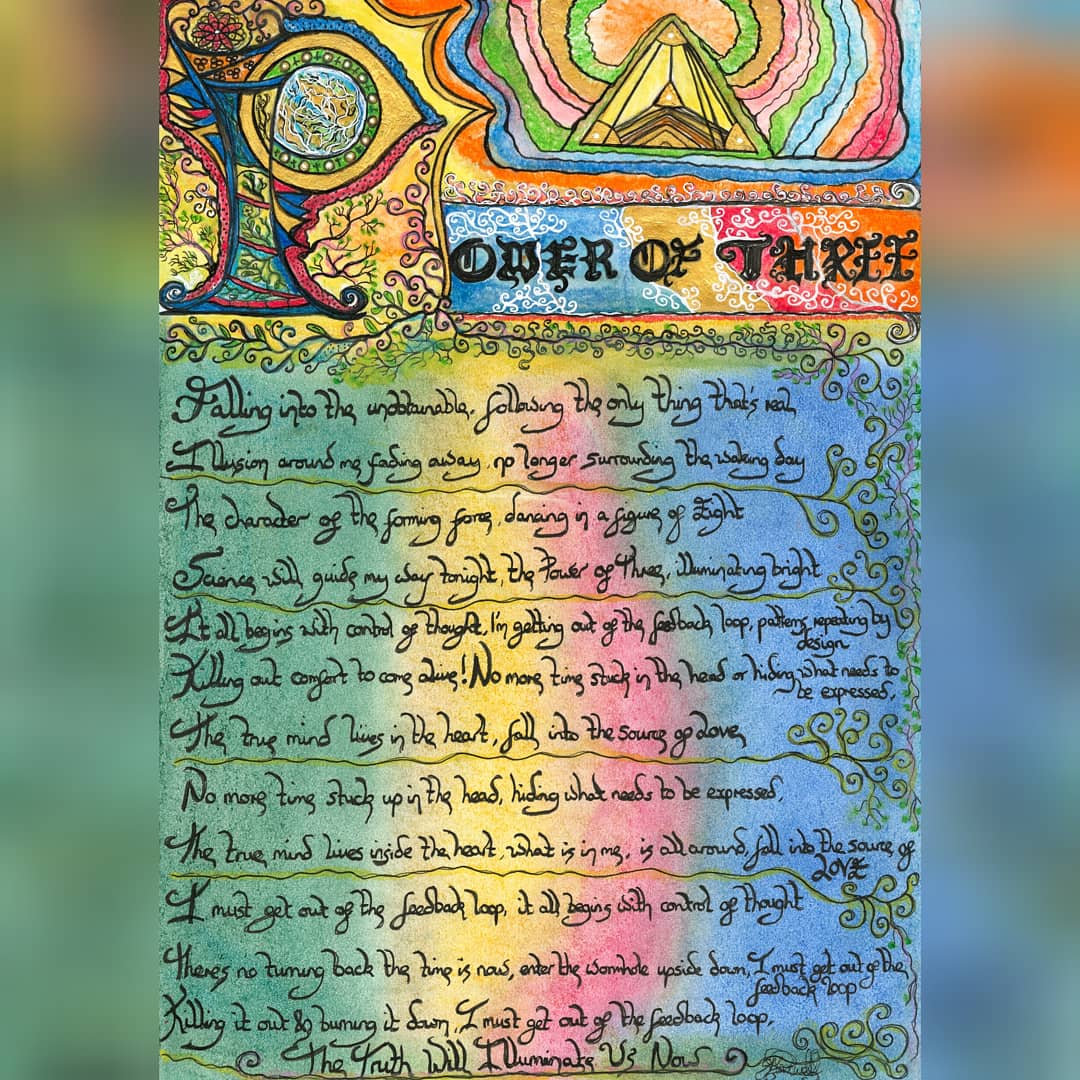 POWER OF THREE
Falling into the unobtainable, following the only thing that's real,
Illusion around me fading away, no longer surrounding the waking day
The character of the forming force, dancing in a figure of Eight
Science will guide my way tonight, the Power of Three, illuminating bright
It all begins with control of thought, I'm getting out of the feedback loop, patterns repeating by
design
Killing out comfort to come alive! No more time stuck in the head or hiding what needs to
be expressed,
The true mind lives in the heart, fall into the source of Love,
No more time stuck up in the head, hiding what needs to be expressed,
The true mind lives inside the heart, what is in me, is all around, fall into the source of
LOVE
I must get out of the feedback loop, it all begins with control of thought
Theres no turning back the time is now, enter the wormhole upside down, I must get out of the
feedback loop
Killing it out & burning it down, I must get out of the feedback loop,
The Truth Will Illuminate Us Now